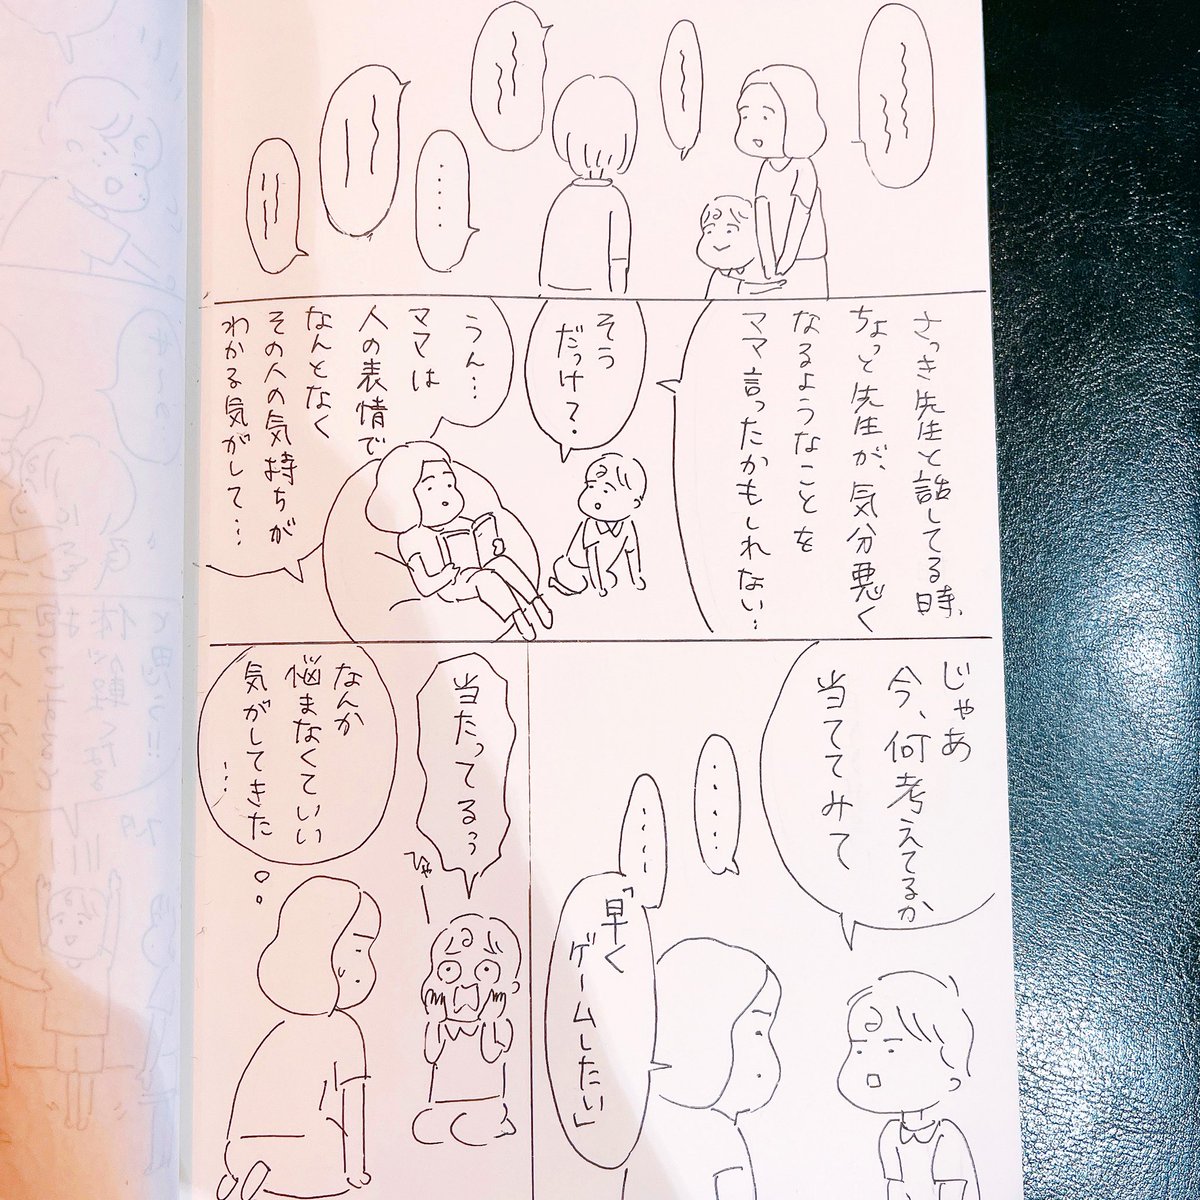 さっき先生と話してる時、
ちょっと先生が、気分悪く
なるようなことを
ママ言ったかもしれない…
そう
だっけ?
うん…
ママは
人の表情で
なんとなく
その人の気持ちが
わかる気がして…
じゃあ
今、何考えてるか
当ててみて
……
……
「早く
ゲームしたい」
当たってるぅ
ひゃー
なんか
悩まなくていい
気がしてきた
…